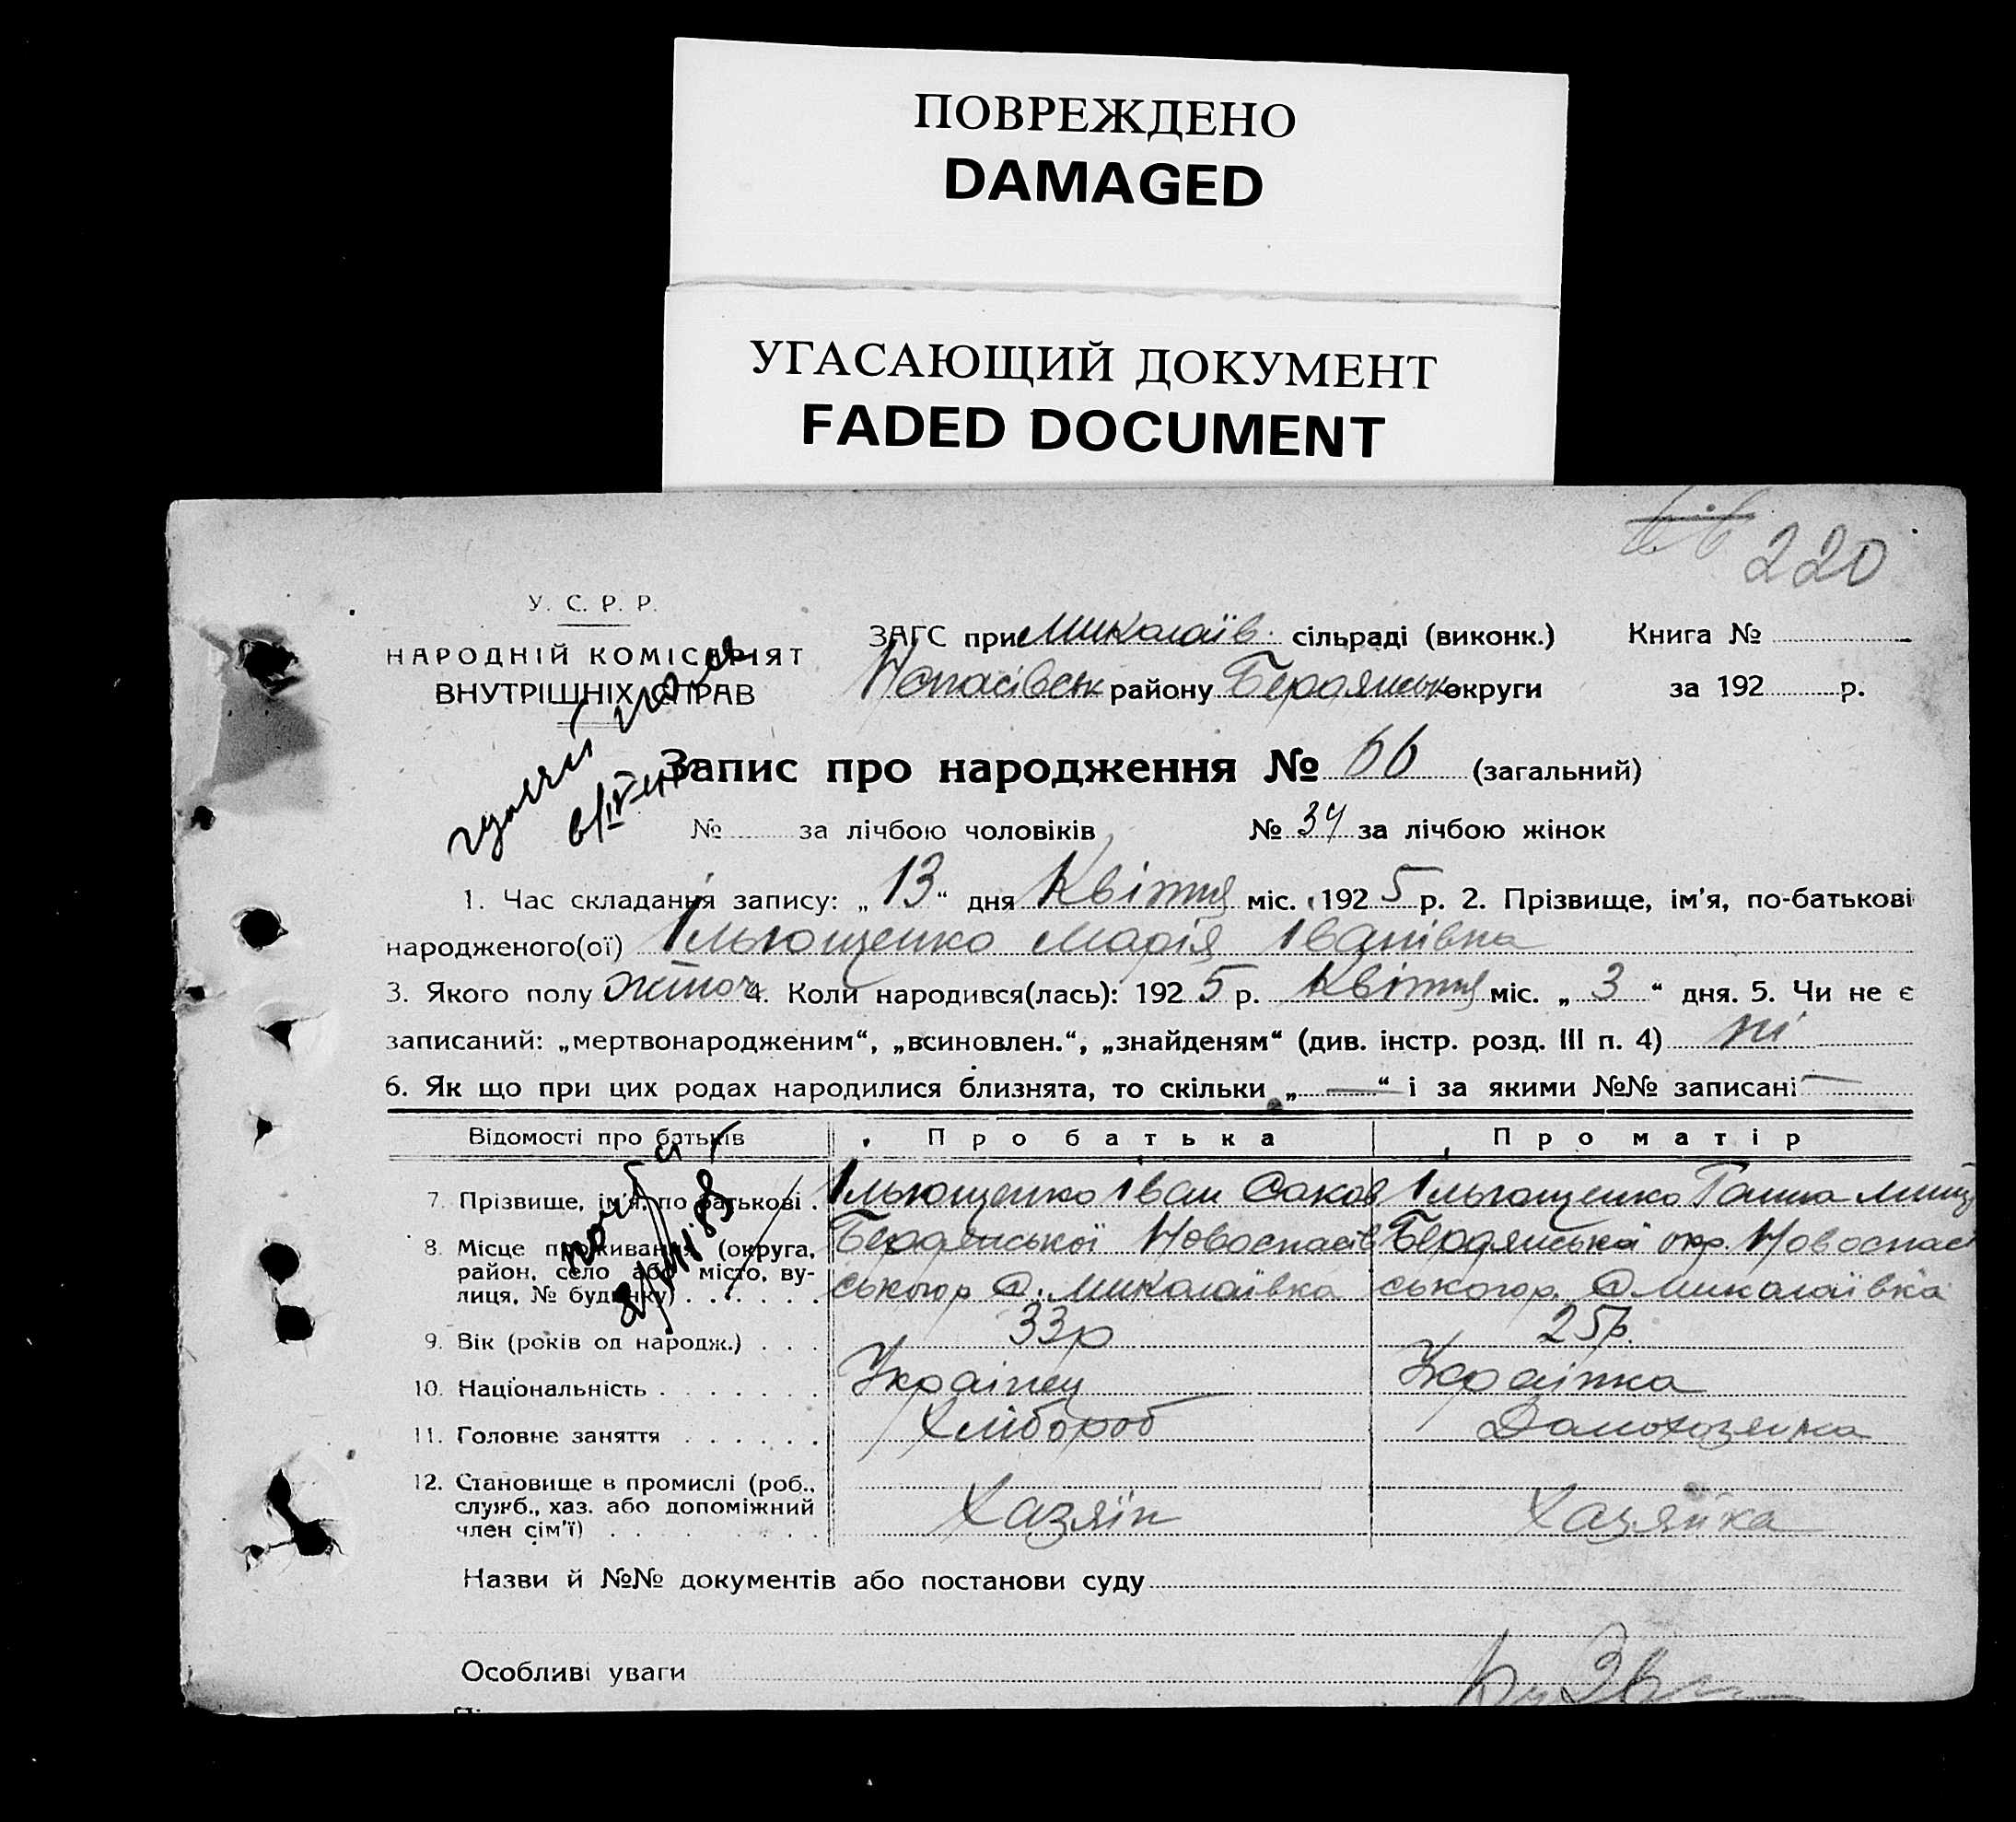 ПОВРЕЖДЕНО
DAMAGED
УГАСАЮЩИЙ ДОКУМЕНТ
FADED DOCUMENT
220
У. С. Р. Р.
НАРОДНІЙ КОМІСАРІЯТ
ВНУТРІШНІХ СПРАВ
ЗАГС при Миколаїв. сільраді (виконк.) Книга №
району Бердянськ округи за 192 р.
Запис про народження № 66 (загальний)
№ за лічбою чоловіків № 34 за лічбою жінок
1. Час складання запису: „ 13 “ дня Квітня міс. 192 5 р. 2. Прізвище, ім'я, по-батькові
народженого(ої) Ільющенко Марія Іванівна
3. Якого полу жіноч 4. Коли народився(лась): 192 5 р. Квітня міс. „ 3 “ дня. 5. Чи не є
записаний: „мертвонародженим“, „всиновлен.“, „знайденям“ (див. інстр. розд. III п. 4) ні
6. Як що при цих родах народилися близнята, то скільки „ — “ і за якими №№ записані —
Відомості про батьків Про батька Про матір
7. Прізвище, ім'я, по батькові . Ільющенко Іван Саков Ільющенко Ганна
8. Місце проживання (округа, район, село або місто, вулиця, № будинку) . . . . . .
Бердянської Новоспасів Бердянської окр. Новоспасі
ського р с. Миколаївка ського р. с Миколаївка
9. Вік (років од народж.) . . . 33р 25р.
10. Національність . . . . . . . Українец Українка
11. Головне заняття . . . . . . Хлібороб Домохозяйка
12. Становище в промислі (роб., служб., хаз. або допоміжний член сім'ї) . . . . . . . . Хазяїн Хазяйка
Назви й №№ документів або постанови суду
Особливі уваги